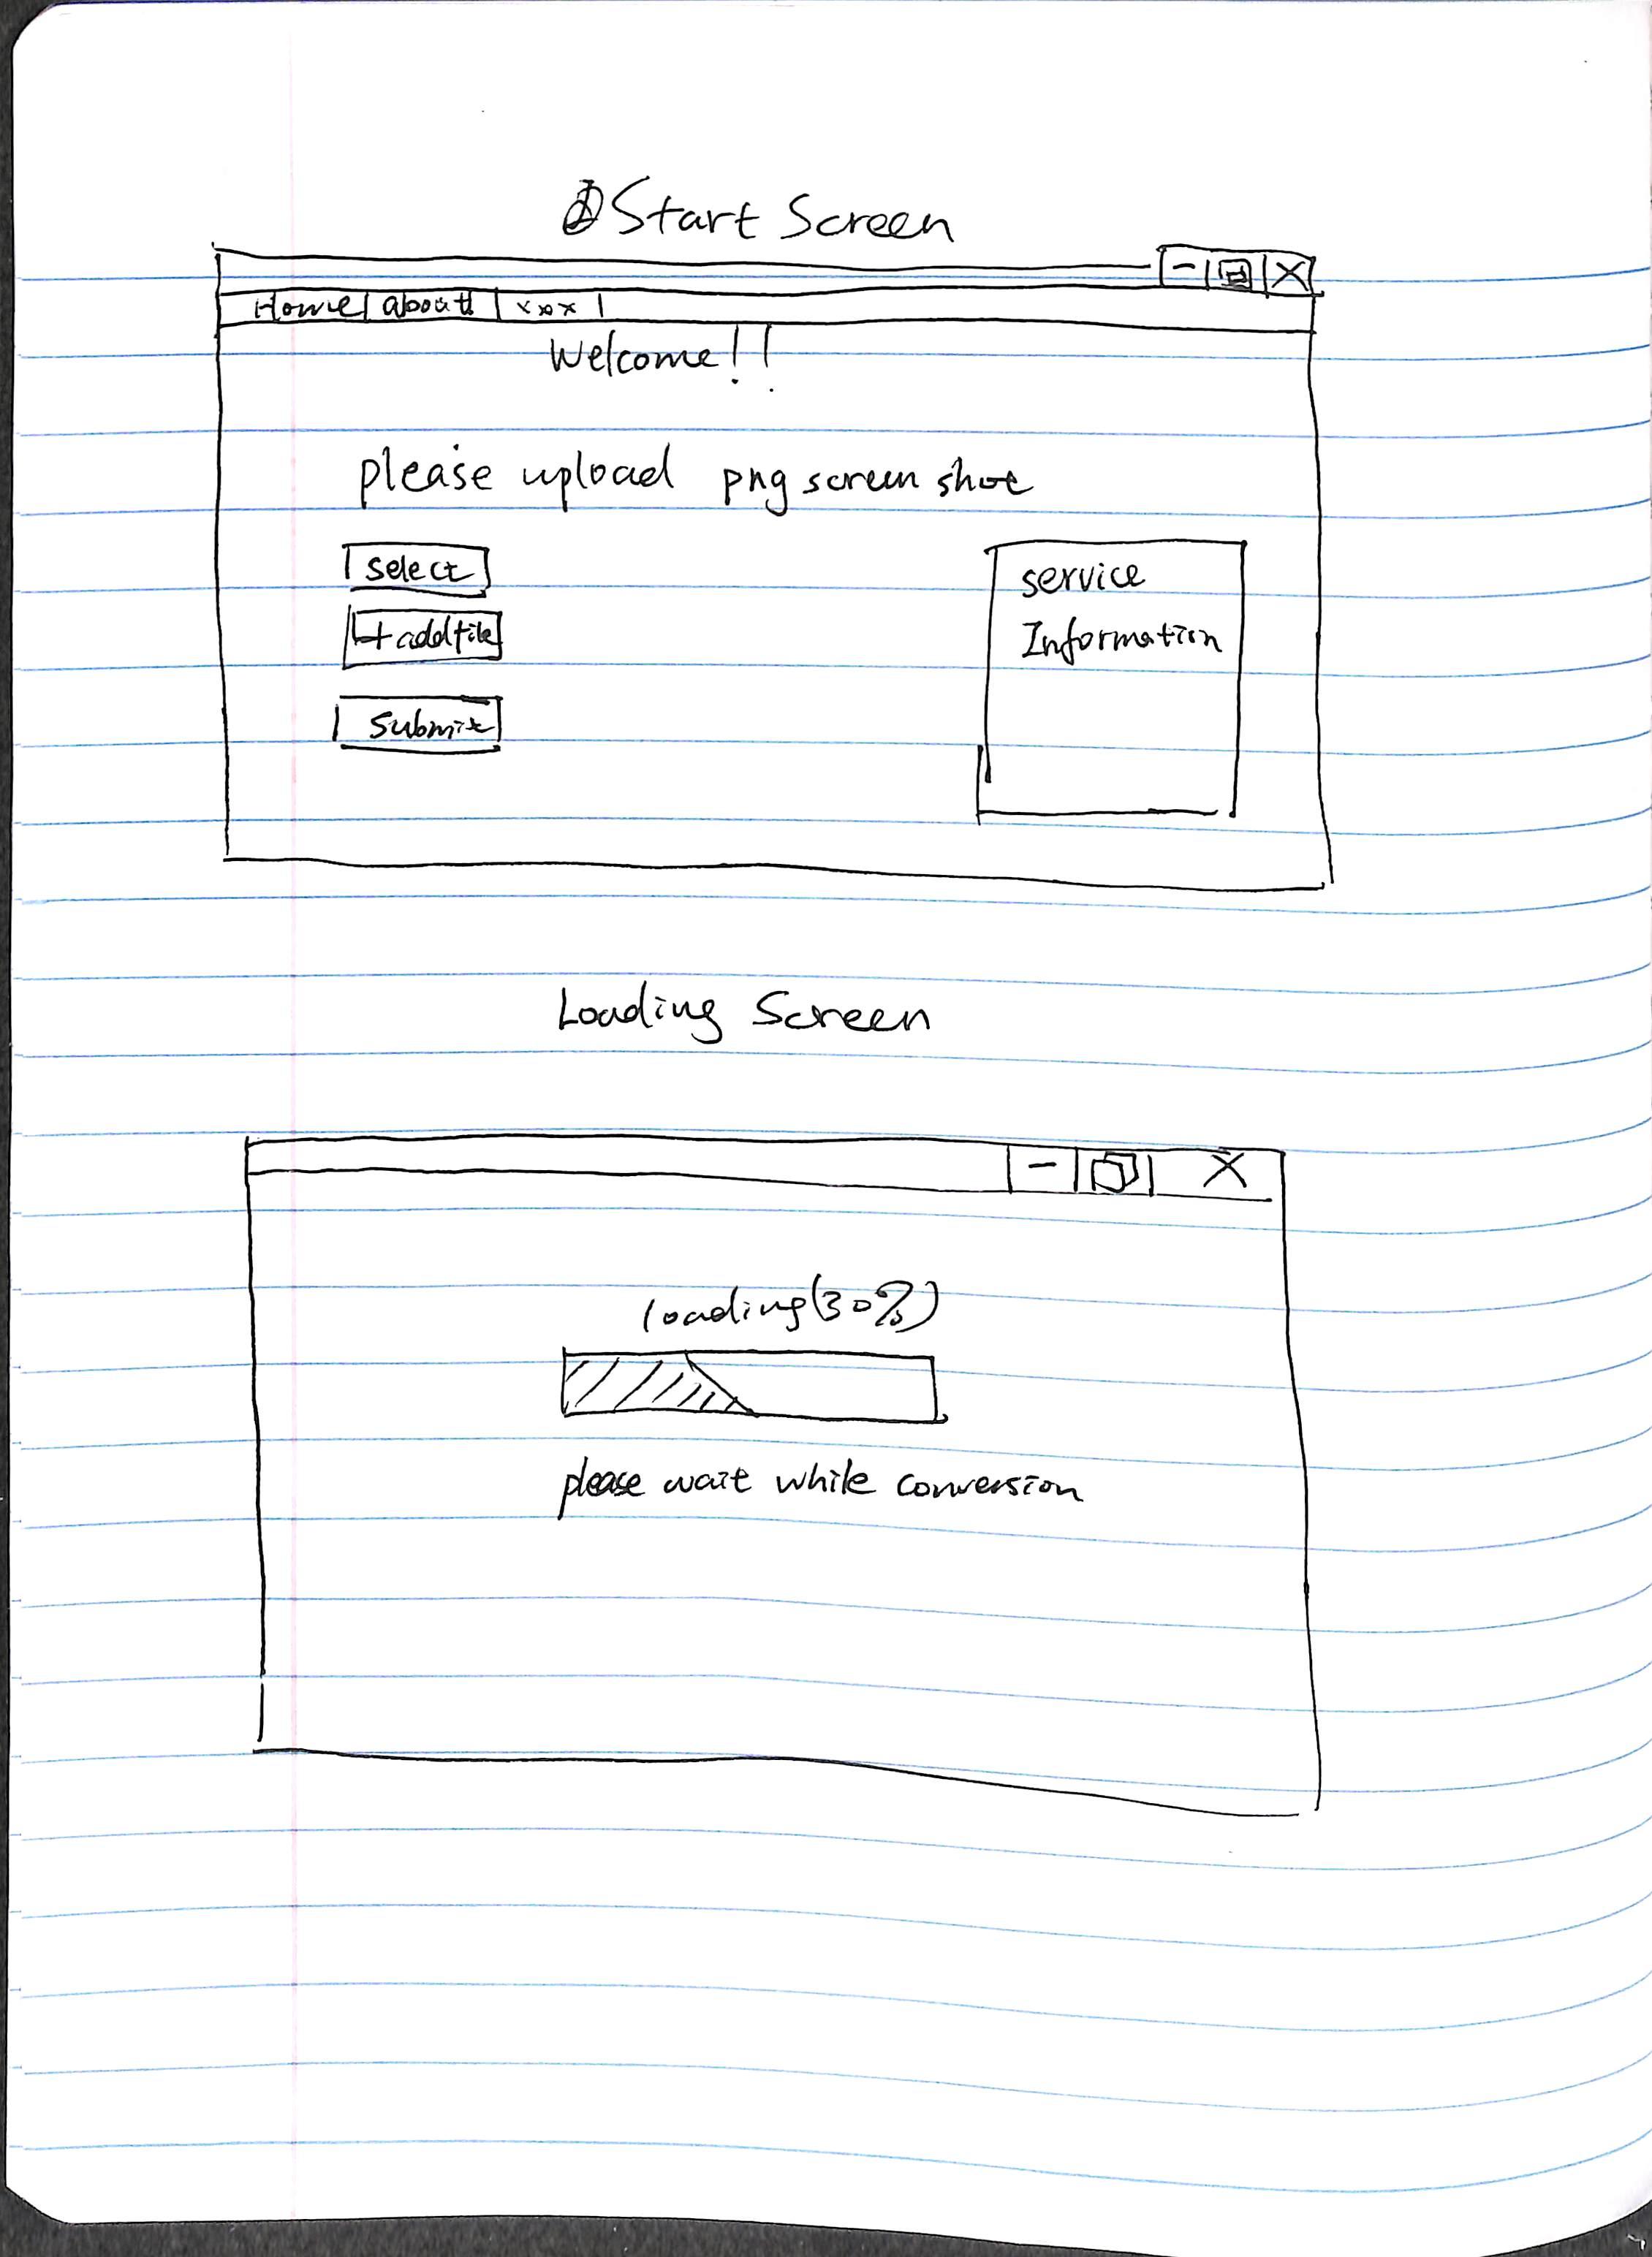 Start Screen
Home about xxx
Welcome!!
please upload png screen shot
select
+ add file
submit
service
Information
Loading Screen
loading (30%)
please wait while conversion